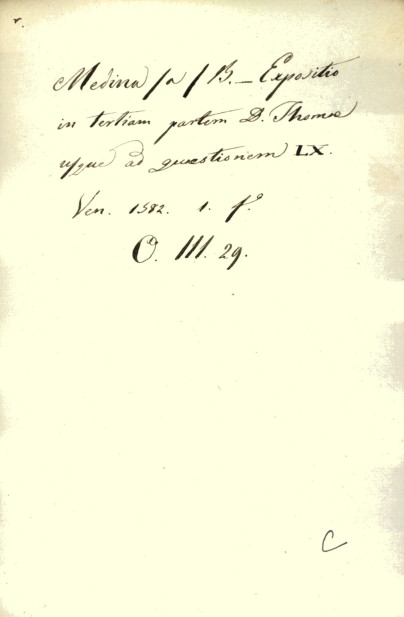 Medina /a/ B._ Expositio
in tertiam partem D. Thomæ
usque ad quæstionem LX.
Ven. 1582. 1. fº
O. III. 29.
C